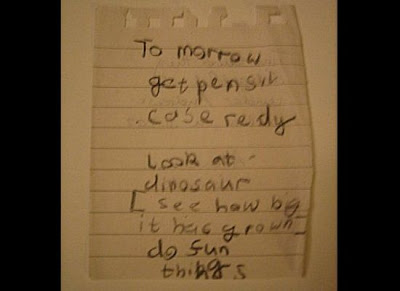 To morrow
get pensil
case redy
Look at
dinosaur
[ see how big
it has grown
do fun
things